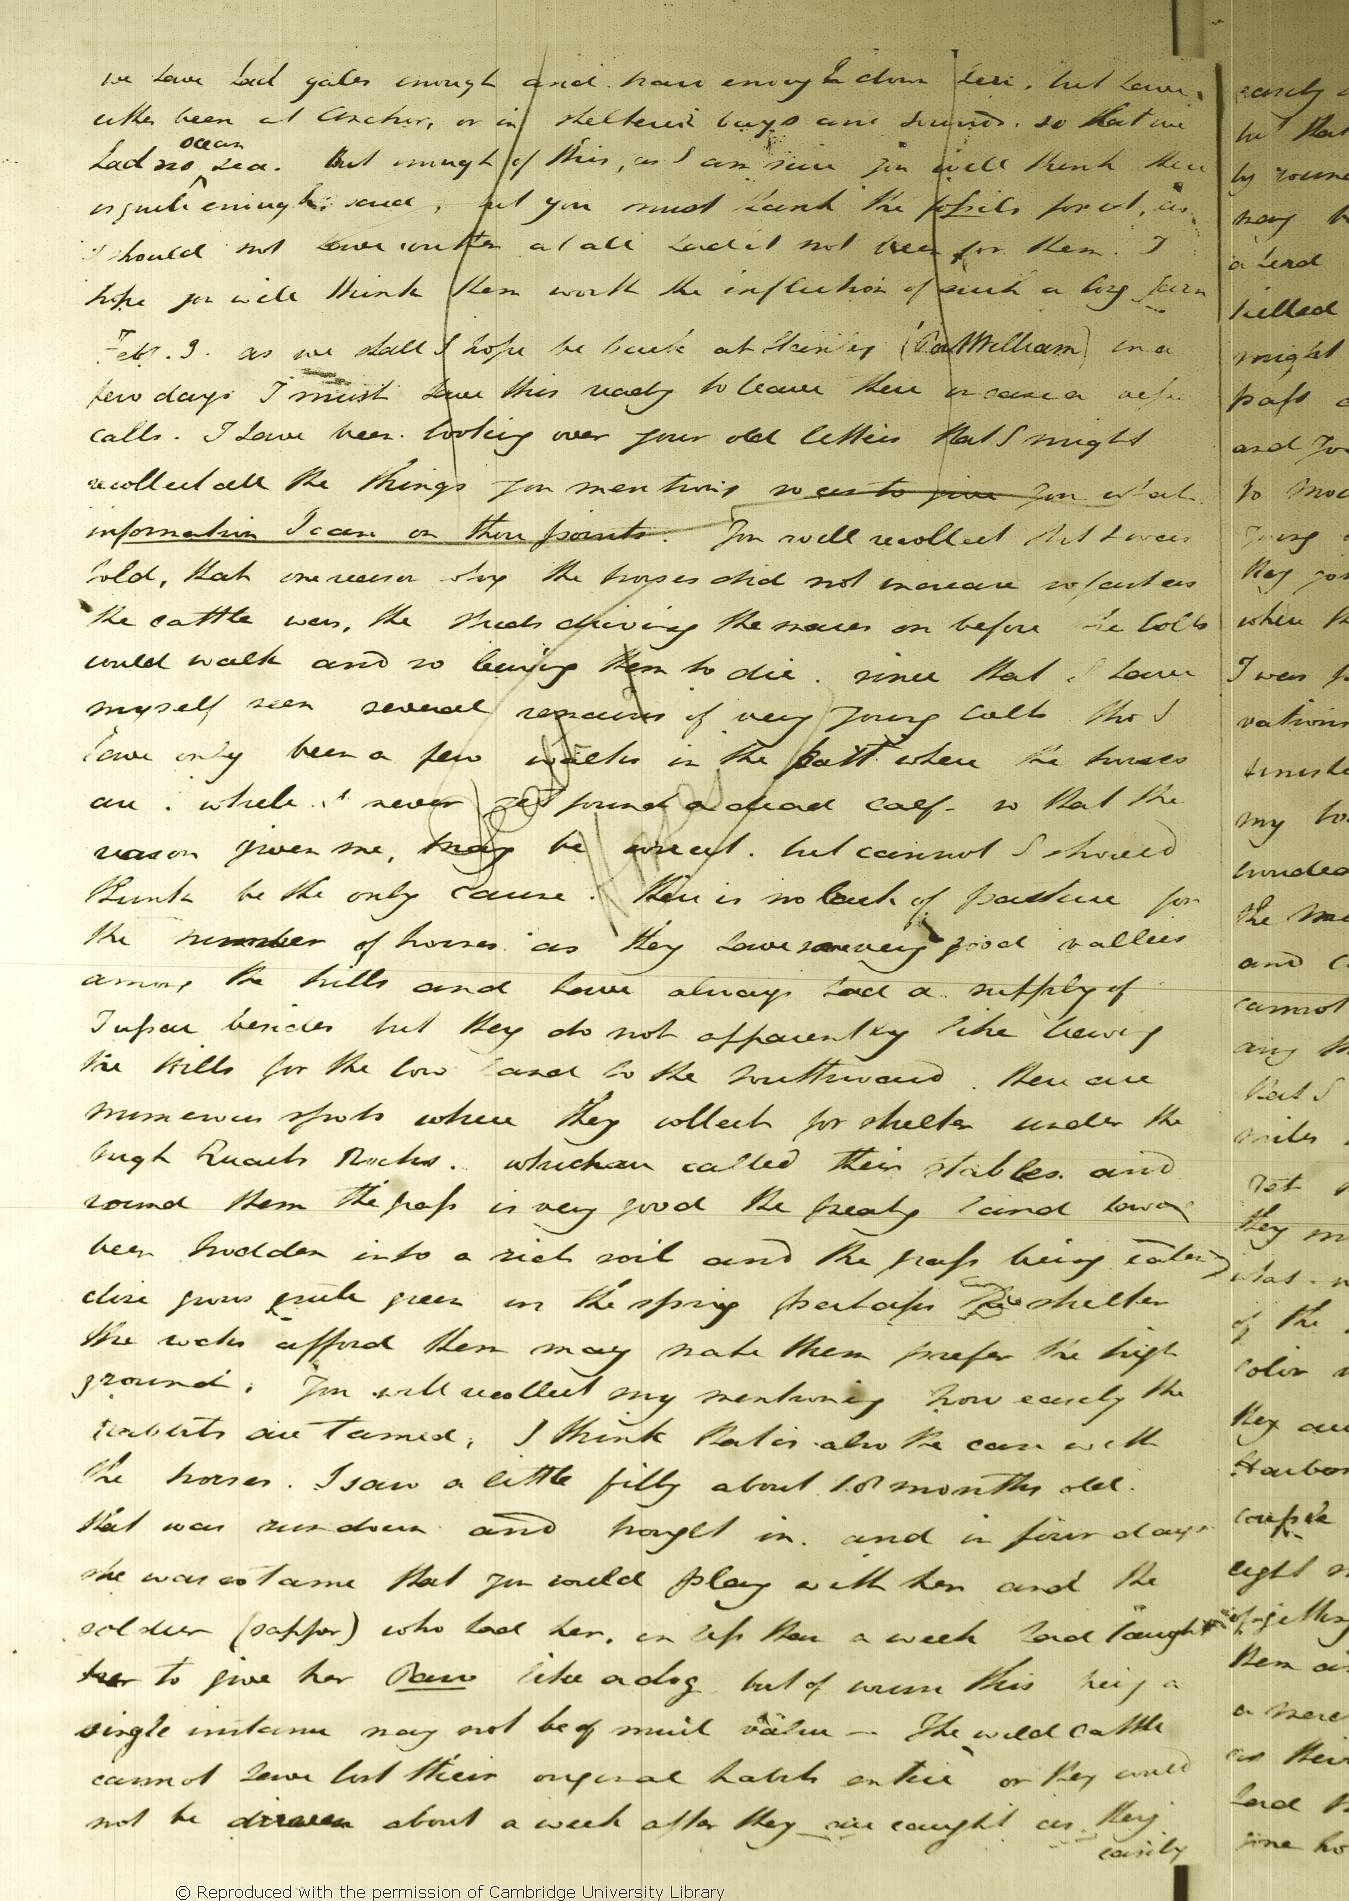 we have had gales enough and have enough down here, but have
either been at anchor, or in sheltered bays and sounds. so that we
ocean
had no sea. But enough of this, as I am sure you will think there
is quite enough said, but you must thank the fossils for it, as
I should not have written at all had it not been for them. I
hope you will think them worth the infliction of such a long yarn
Feb. 9. as we shall I hope be back at Stanley (Port William) in a
few days I must have this ready to leave there in case a
calls. I have been looking over your old letters that I might
recollect all the things you mention, so as to give you what
information I can on those points. You will recollect that I was
told, that one reason why the horses did not increase so fast as
the cattle was, the driving the mares on before the Colts
could walk and so leaving them to die. since that I have
myself seen several remains of very young Colts tho I
have only been a few weeks in the part where the horses
are. while I never yet found a dead calf. so that the
reason given me, may be correct. but cannot I should
think be the only cause. there is no lack of pasture for
the number of horses as they have some very good vallies
among the hills and have always had a supply of
Tussac besides but they do not apparently like leaving
the Hills for the low land to the southward. there are
numerous spots where they collect for shelter under the
high Quartz Rocks. which are called their stables. and
round them the grass is very good the peaty land having
been trodden into a rich soil and the grass being eaten
close grows quite green in the spring perhaps the shelter
the rocks afford them may make them prefer the high
ground. You will recollect my mentioning how easily the
rabbits are tamed, I think that is also the case with
the horses. I saw a little filly about 18 months old.
that was run down and brought in. and in four days
she was so tame that you could play with her and the
soldier (sapper) who had her, in less than a week had taught
her to give her Paw like a dog but of course this being a
single instance may not be of much value — The wild cattle
cannot have lost their original habits entire or they could
not be driven about a week after they are caught as they
easily
© Reproduced with the permission of Cambridge University Library